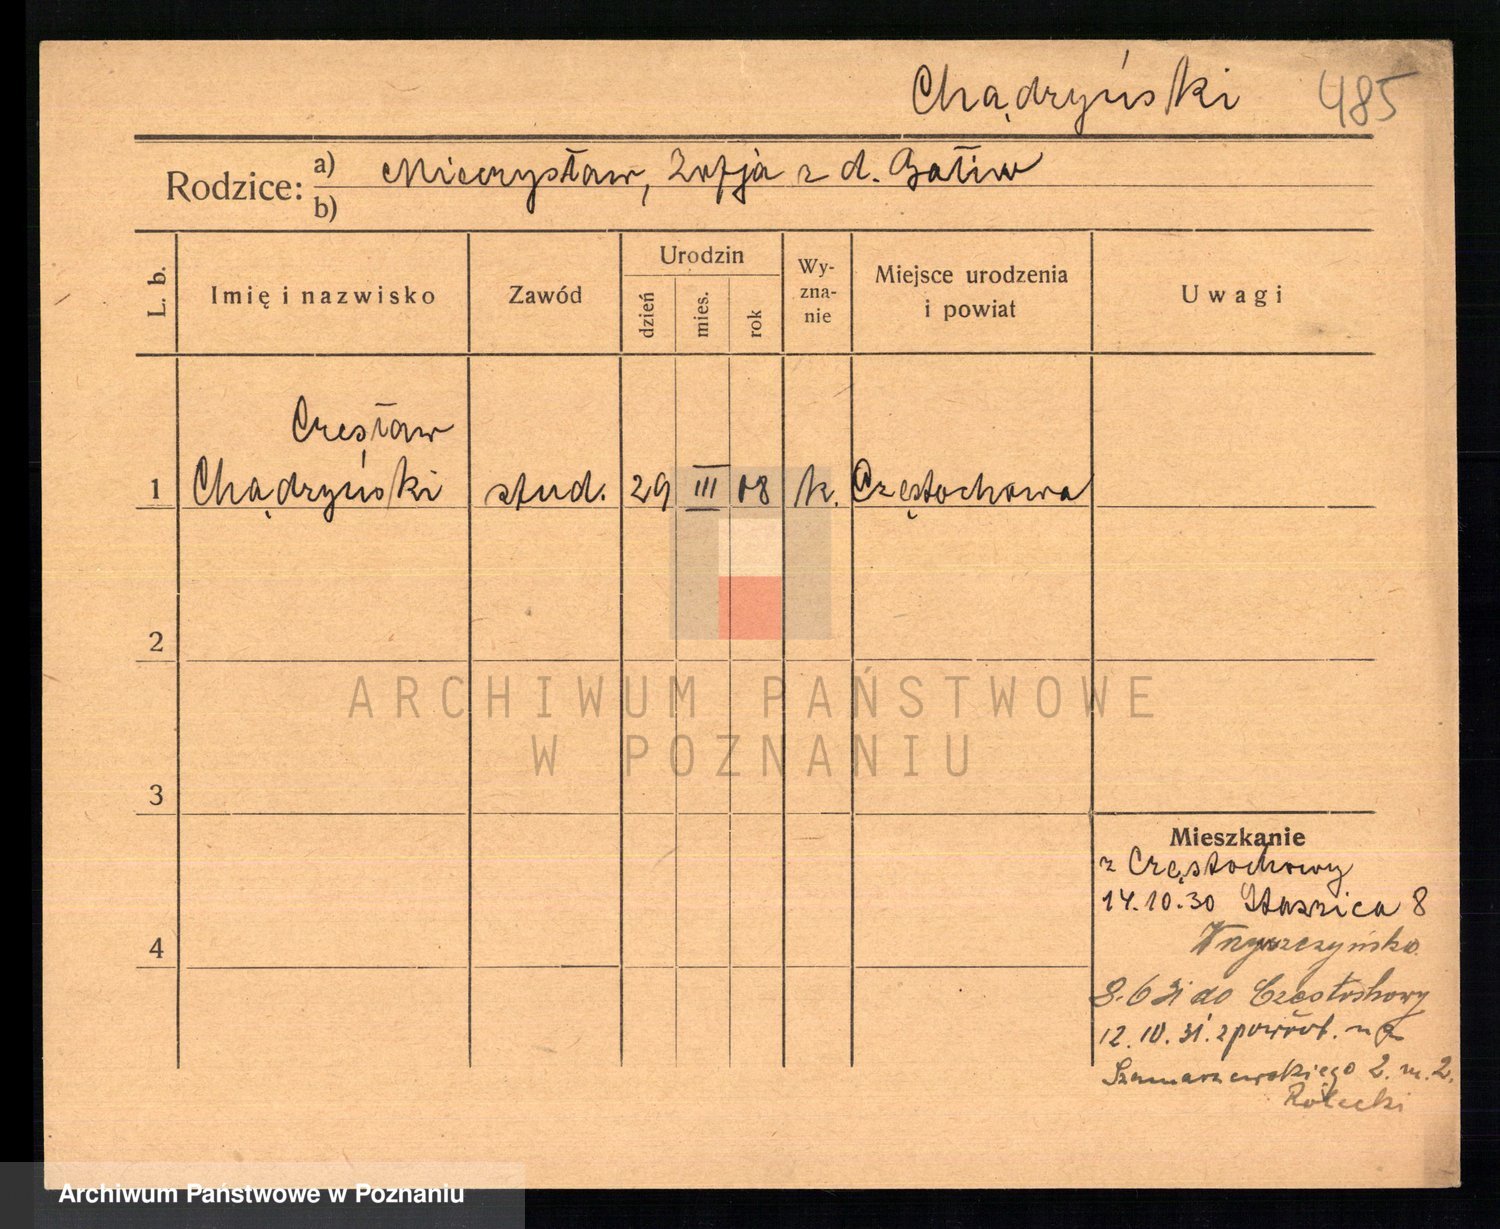 Chądzyński 485
Rodzice: a) Mieczysław, Zofja z d. Gatiw
b)
L. b. Imię i nazwisko Zawód Urodzin dzień mies. rok Wy-zna-nie Miejsce urodzenia i powiat Uwagi
Czesław
1 Chądzyński stud. 29 III 08 k. Częstochowa
2
ARCHIWUM PAŃSTWOWE
W POZNANIU
3
Mieszkanie
z Częstochowy
14.10.30 Staszica 8
4
8.6 31 do Częstochowy
12.10.31. z powrot. na
Szamarzewskiego 2. m. 2.
Archiwum Państwowe w Poznaniu